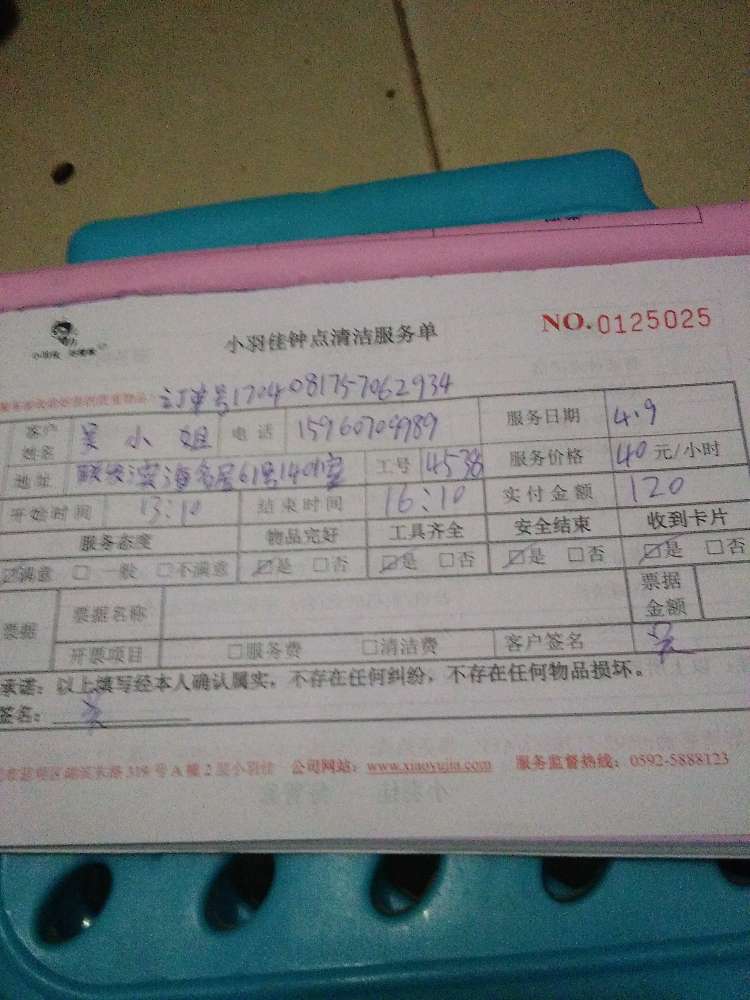 小羽佳钟点清洁服务单 NO.0125025
订单号1704081757062934
客户姓名 吴小姐 电话 15960709989 服务日期 4.9
地址 工号 4538 服务价格 40元/小时
开始时间 13:10 结束时间 16:10 实付金额 120
服务态度 物品完好 工具齐全 安全结束 收到卡片
☑满意 □一般 □不满意 ☑是 □否 ☑是 □否 ☑是 □否 ☑是 □否
票据 票据名称 票据金额
开票项目 □服务费 □清洁费 客户签名 吴
承诺：以上填写经本人确认属实，不存在任何纠纷，不存在任何物品损坏。
签名： 吴
319号A幢2层小羽佳 公司网站：www.xiaoyujia.com 服务监督热线：0592-5888123